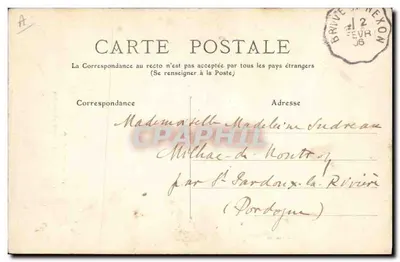 A
BRIVE A NEXON
2
FEVR
06
CARTE POSTALE
La Correspondance au recto n'est pas acceptée par tous les pays étrangers
(Se renseigner à la Poste)
Correspondance Adresse
Mademoiselle Madeleine Sudreau
CPARAMA
Milhac-de-Nontron
par St Pardoux-la-Rivière
(Dordogne)